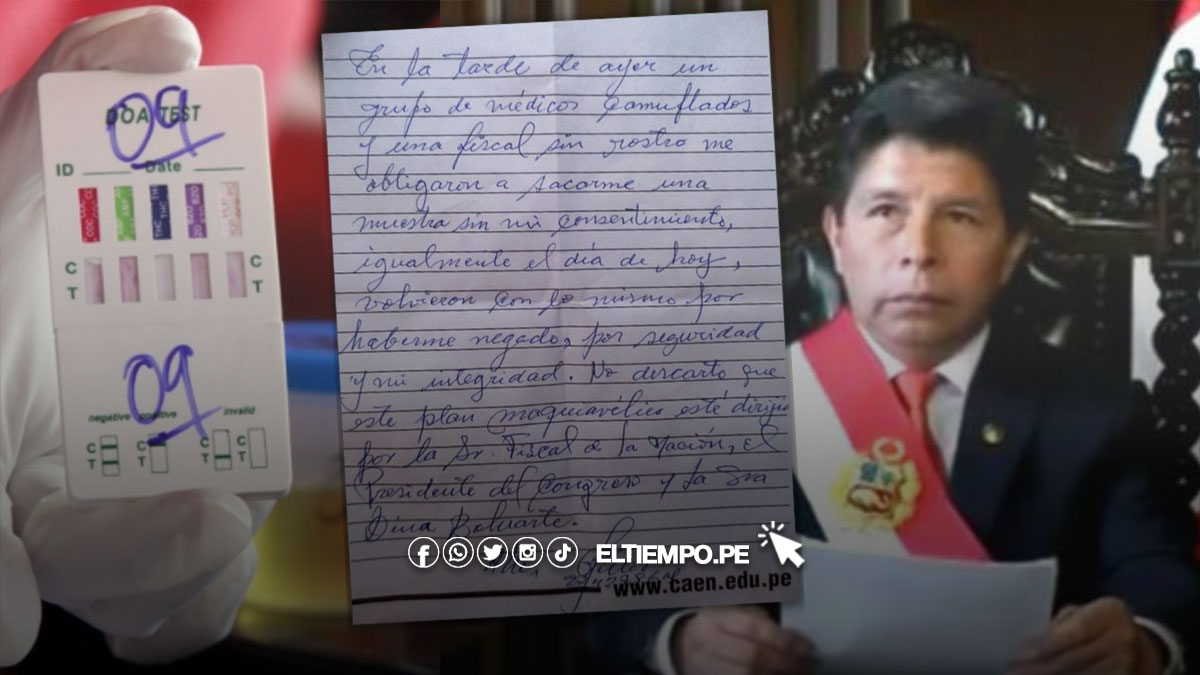 DOA TEST
09
ID ____ Date ____
COC
THC
BZO
C C
T T
09
negative positive invalid
C C C C
T T T
En la tarde de ayer un
grupo de médicos camuflados
y una fiscal sin rostro me
obligaron a sacarme una
muestra sin mi consentimiento,
igualmente el día de hoy,
volvieron con lo mismo por
haberme negado, por seguridad
y mi integridad. No descarto que
este plan maquiavélico esté dirijido
por la Sr. Fiscal de la Nación, el
Presidente del Congreso y la Sra
Dina Boluarte.
ELTIEMPO.PE
www.caen.edu.pe